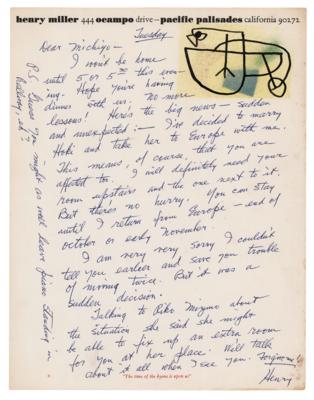 henry miller 444 ocampo drive – pacific palisades california 90272
Tuesday
Dear Michiyo –
I won't be home
until 5 or 5:30 this even-
ing. Hope you're having
dinner with us. No more
lessons! Here's the big news – sudden
and unexpected: – I've decided to marry
Hoki and take her to Europe with me.
This means, of course, that you are
affected too. I will definitely need your
room upstairs and the one next to it.
But there's no hurry. You can stay
until I return from Europe – end of
October or early November.
I am very very sorry I couldn't
tell you earlier and save you trouble
of moving twice. But it was a
sudden decision.
Talking to Riko Mizuno about
the situation she said she might
be able to fix up an extra room
for you at her place. Will talk
about it all when I see you. Forgive me
Henry
P.S. Guess you might as well leave piano standing in
hallway, eh?
"The time of the hyena is upon us"